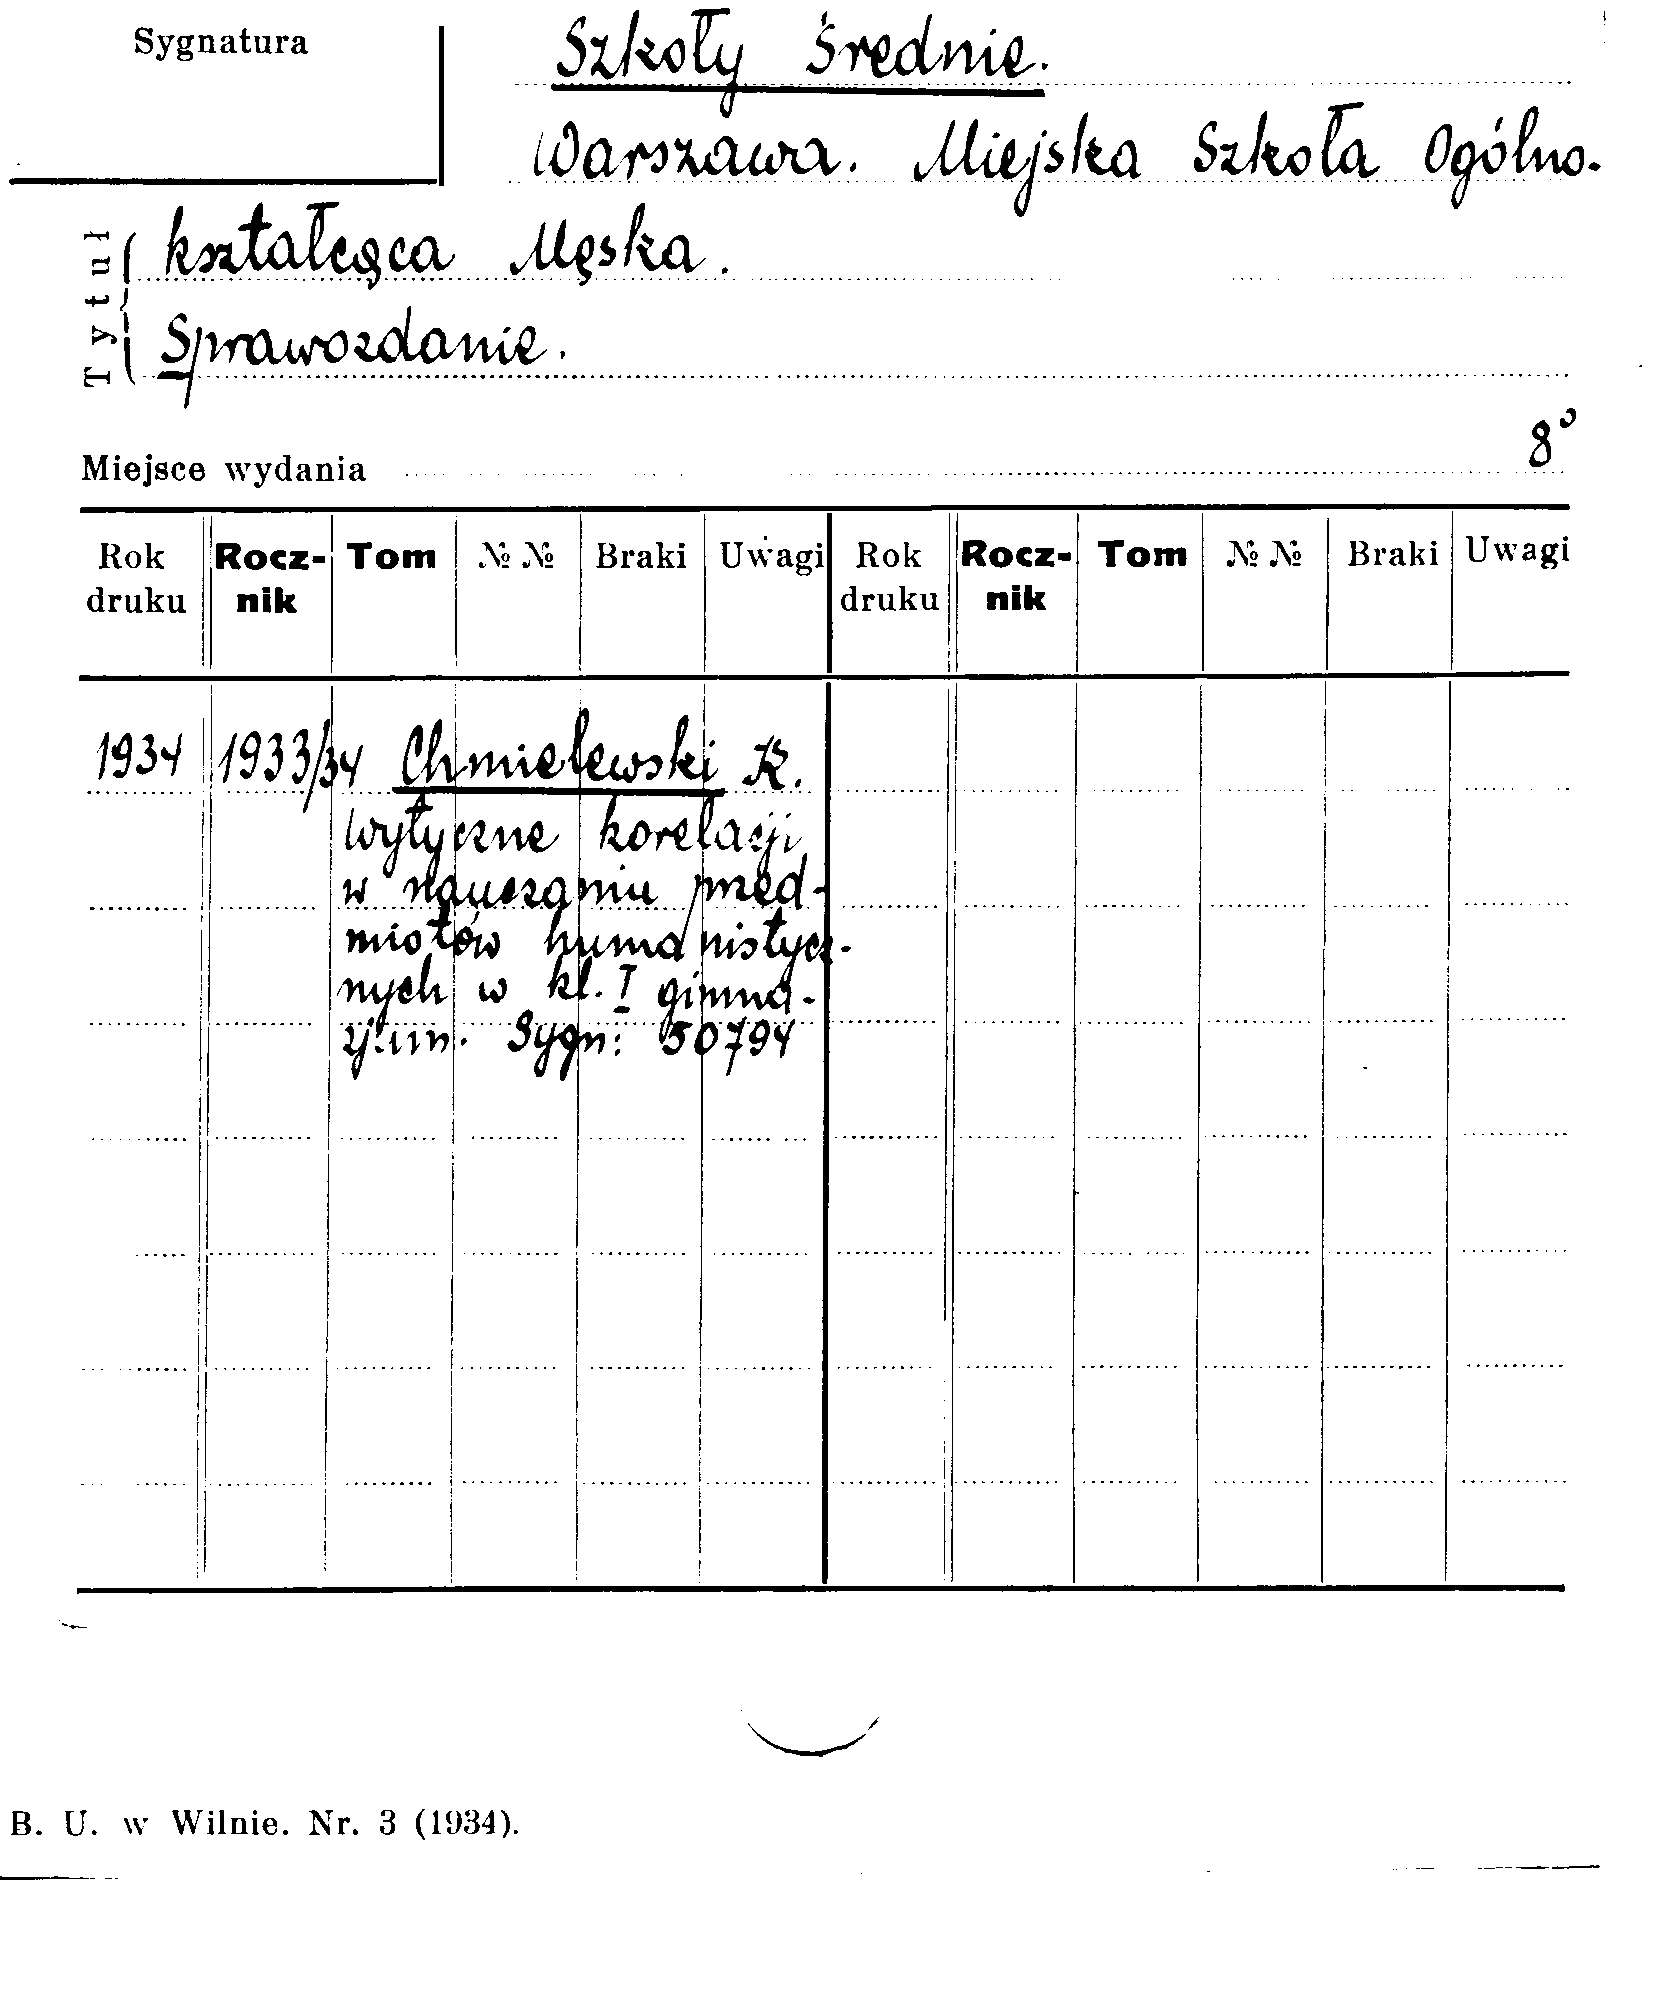 Sygnatura
Szkoły Średnie.
Warszawa. Miejska Szkoła Ogólno-
kształcąca Męska.
Sprawozdanie.
Tytuł
8°
Miejsce wydania
Rok druku Rocz-nik Tom № № Braki Uwagi Rok druku Rocz-nik Tom № № Braki Uwagi
1934 1933/34 Chmielewski K.
Wytyczne korelacji
w nauczaniu przed-
miotów humanistycz-
nych w kl. I gimna-
zjum. Sygn: 50794
B. U. w Wilnie. Nr. 3 (1934).